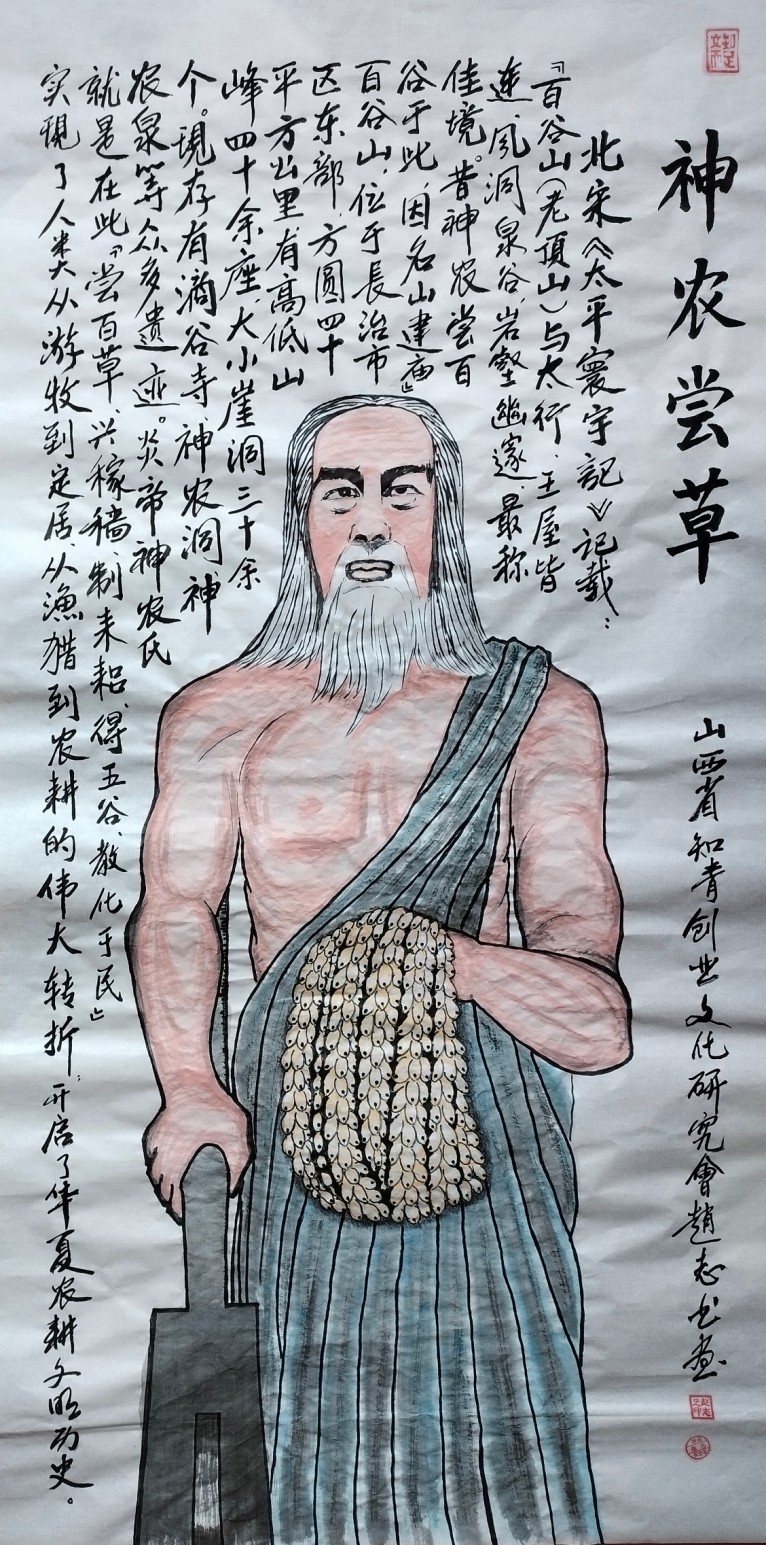 神农尝草
北宋《太平寰宇记》记载：
『百谷山（老頂山）与太行、王屋皆
连，风洞泉谷，岩壑幽邃，最称
佳境。昔神农尝百
谷于此，因名山建庙』
百谷山，位于長治市
区东部，方圆四十
平方公里，有高低山
峰四十余座，大小崖洞三十余
个。现存有滴谷寺、神农洞、神
农泉等众多遗迹。炎帝神农氏
就是在此『尝百草、兴稼穑、制耒耜、得五谷、教化于民』
实現了人类从游牧到定居、从漁猎到农耕的伟大转折；开启了华夏农耕文明历史。
山西省知青创业文化研究會趙志书画